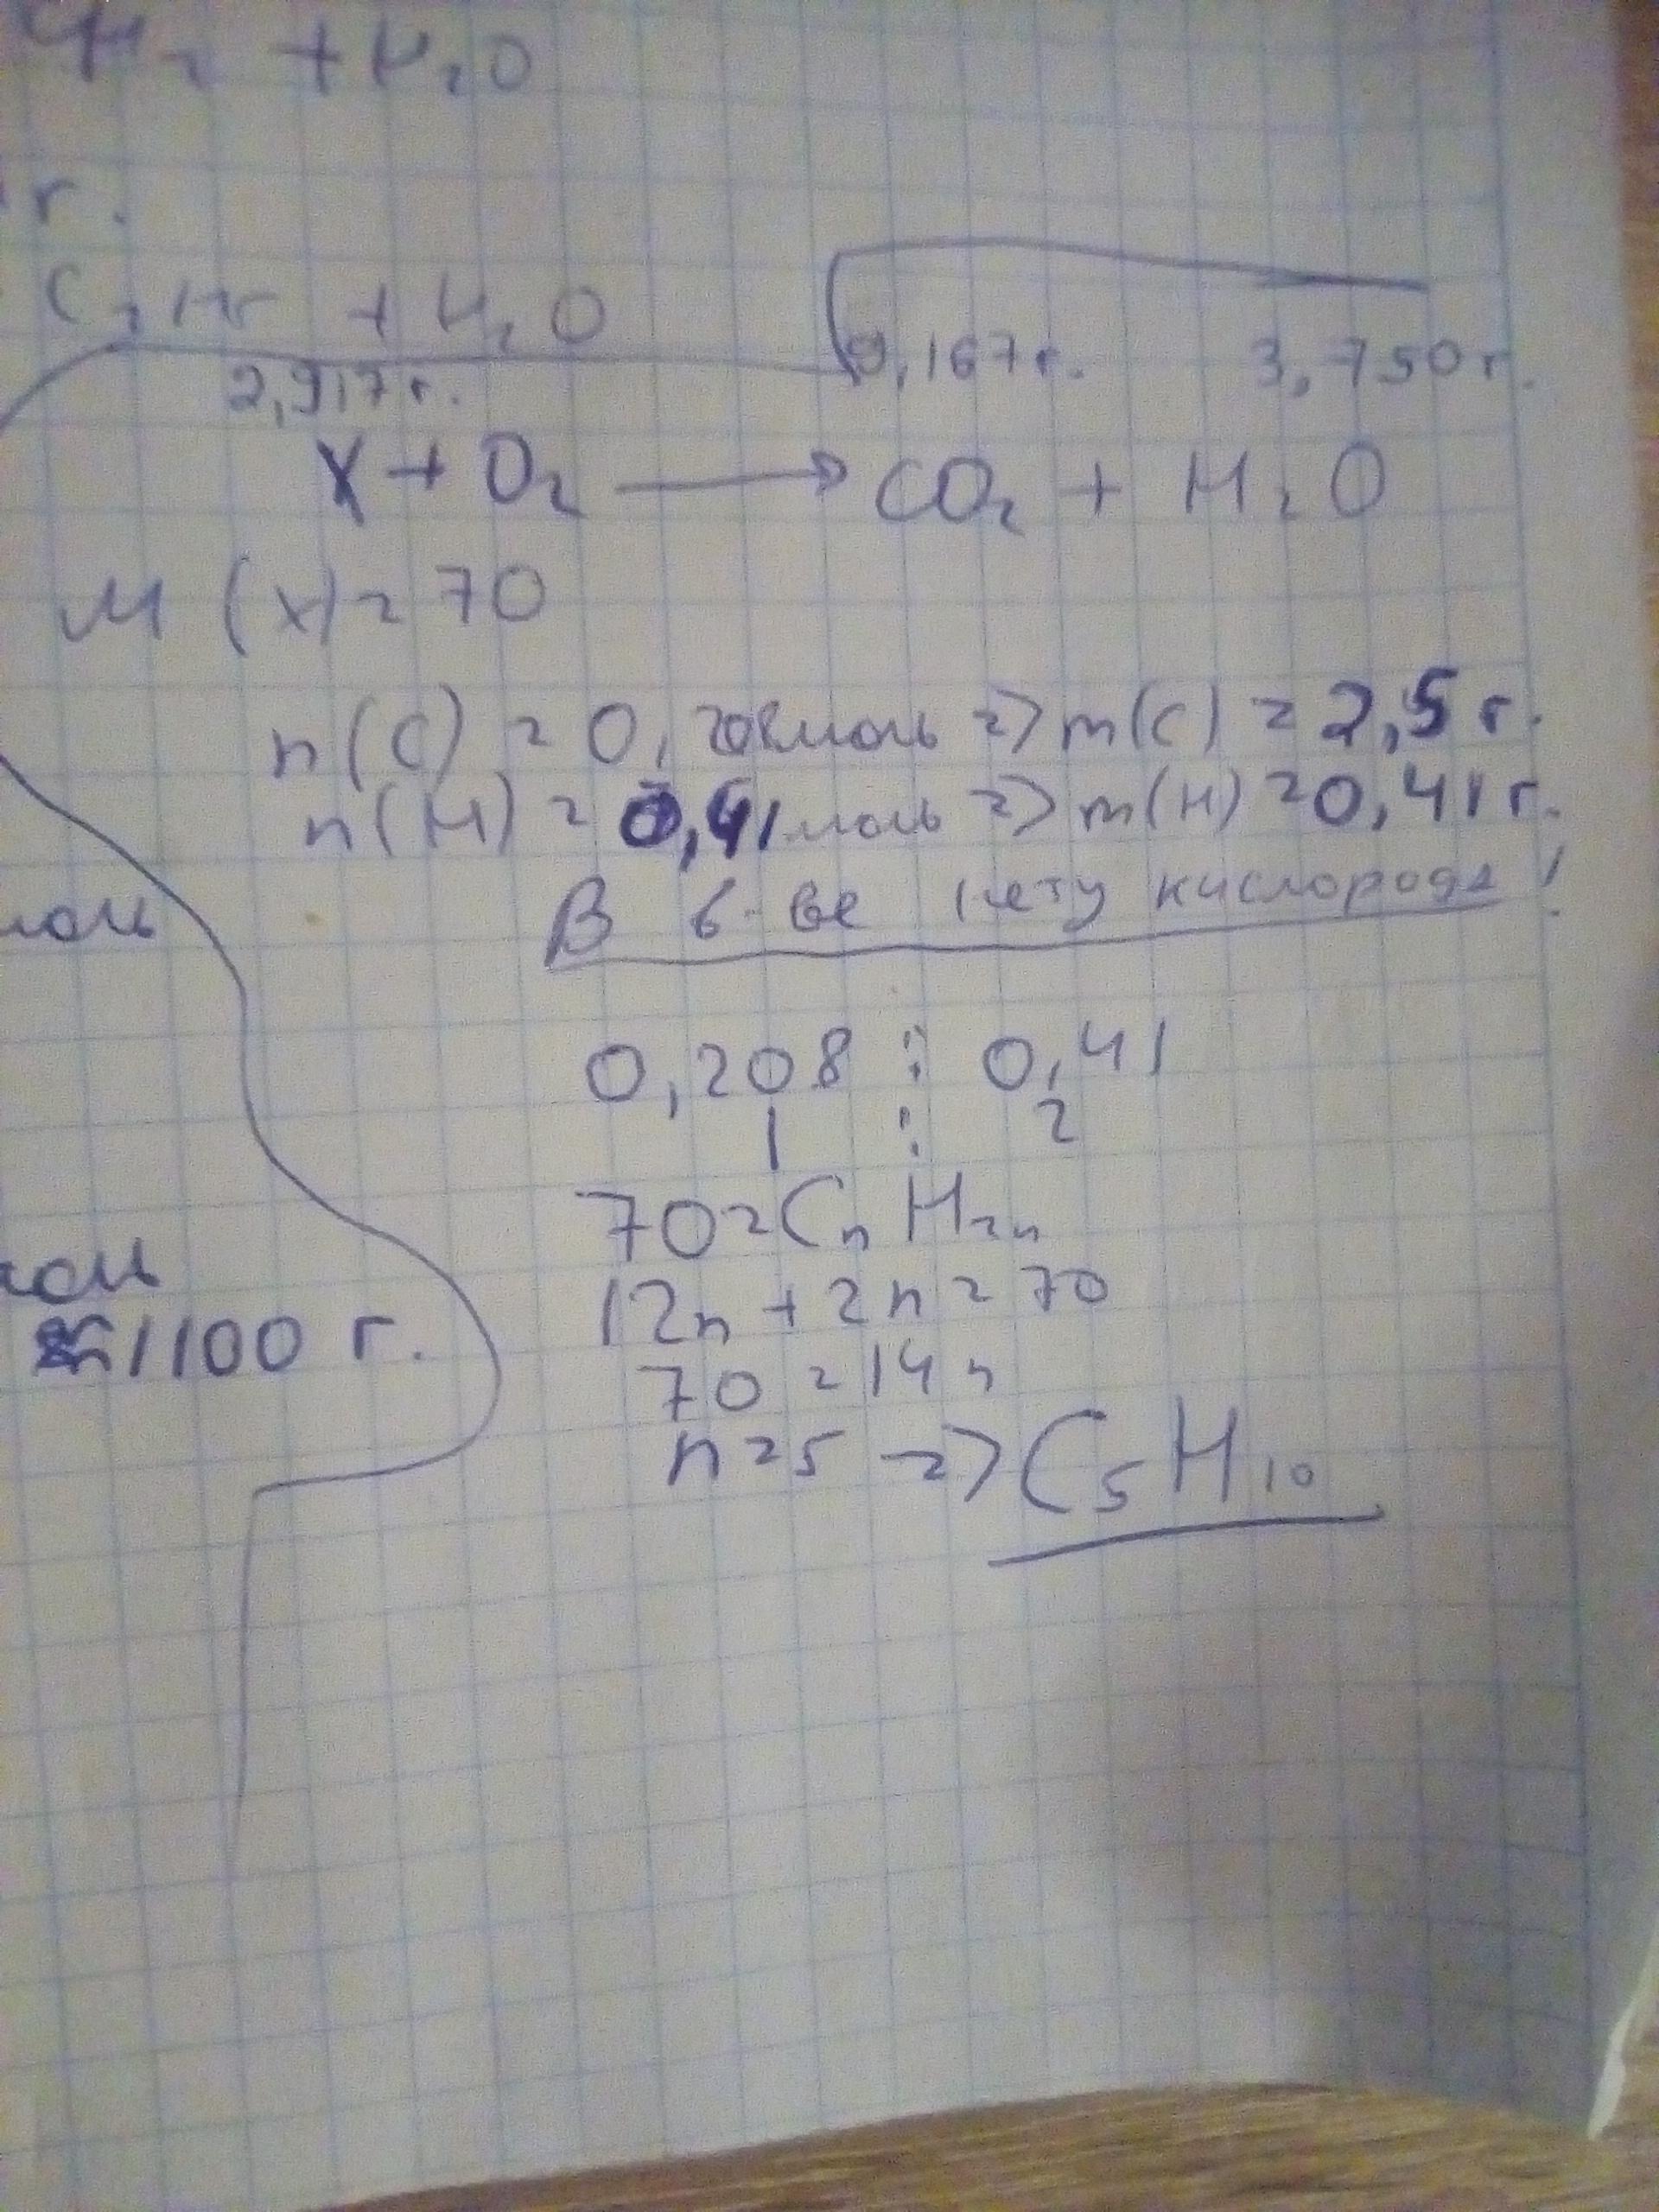 + H₂O
г.
+ H₂O
2,917 г. 9,167 г. 3,750 г.
X + O₂ → CO₂ + H₂O
M (x) = 70
n(C) = 0,208 моль => m(C) = 2,5 г.
n(H) = 0,41 моль => m(H) = 0,41 г.
В в-ве нету кислорода!
моль
0,208 : 0,41
1 : 2
70 = CₙH₂ₙ
12n + 2n = 70
1100 г.
70 = 14n
n = 5 => C₅H₁₀